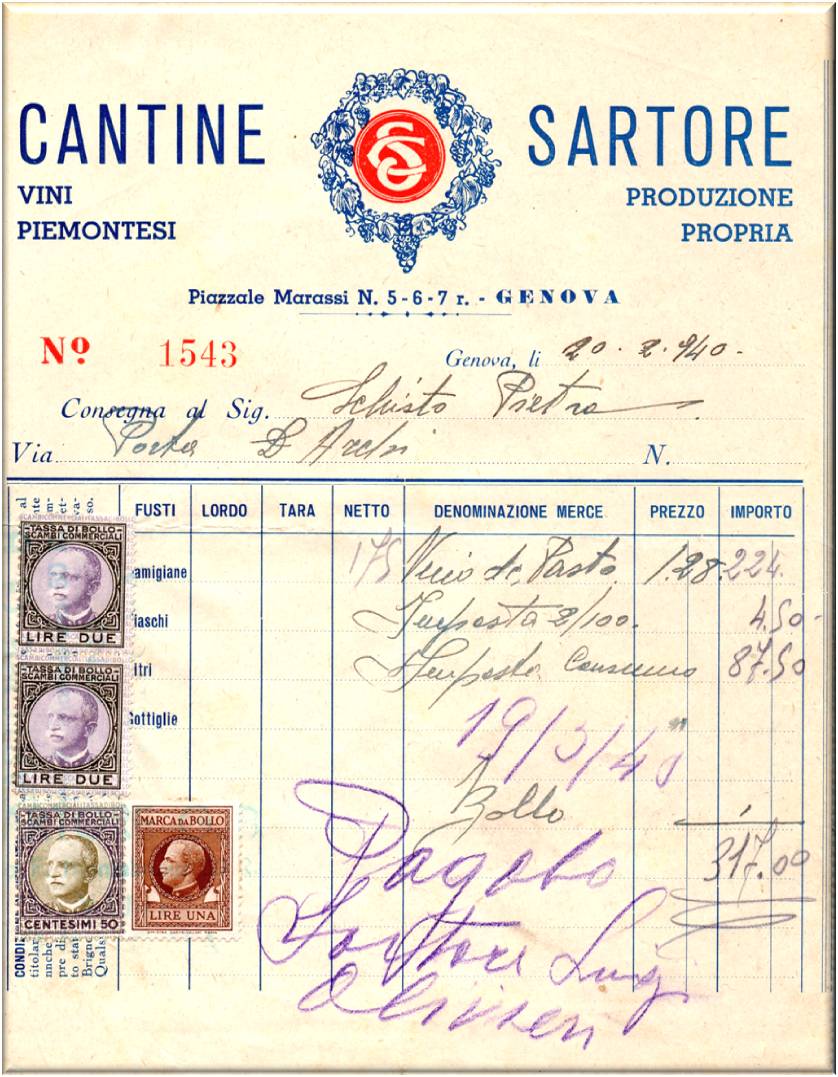 CANTINE SARTORE
VINI PIEMONTESI
PRODUZIONE PROPRIA
Piazzale Marassi N. 5-6-7 r. - GENOVA
Nº 1543
Genova, li 20.2.940.
Consegna al Sig. Schisto Pietro
Via Porta D'Archi N.
al
nte
m-
et-
va-
so.
FUSTI LORDO TARA NETTO DENOMINAZIONE MERCE PREZZO IMPORTO
amigiane 175 Vino da Pasto 1.28 224.
iaschi Imposta 2/100. 4.50
itri Imposta Consumo 87.50
ottiglie
19/3/40
Bollo 1
317.00
Pagato
Sartore Luigi
SCAMBI COMMERCIALI TASSA DI BOLLO
TASSA DI BOLLO
SCAMBI COMMERCIALI
LIRE DUE
TASSA DI BOLLO
SCAMBI COMMERCIALI
LIRE DUE
TASSA DI BOLLO
SCAMBI COMMERCIALI
CENTESIMI 50
MARCA DA BOLLO
LIRE UNA
CONDI
titolar
nnche
pre di
to sta
Brign
Quals